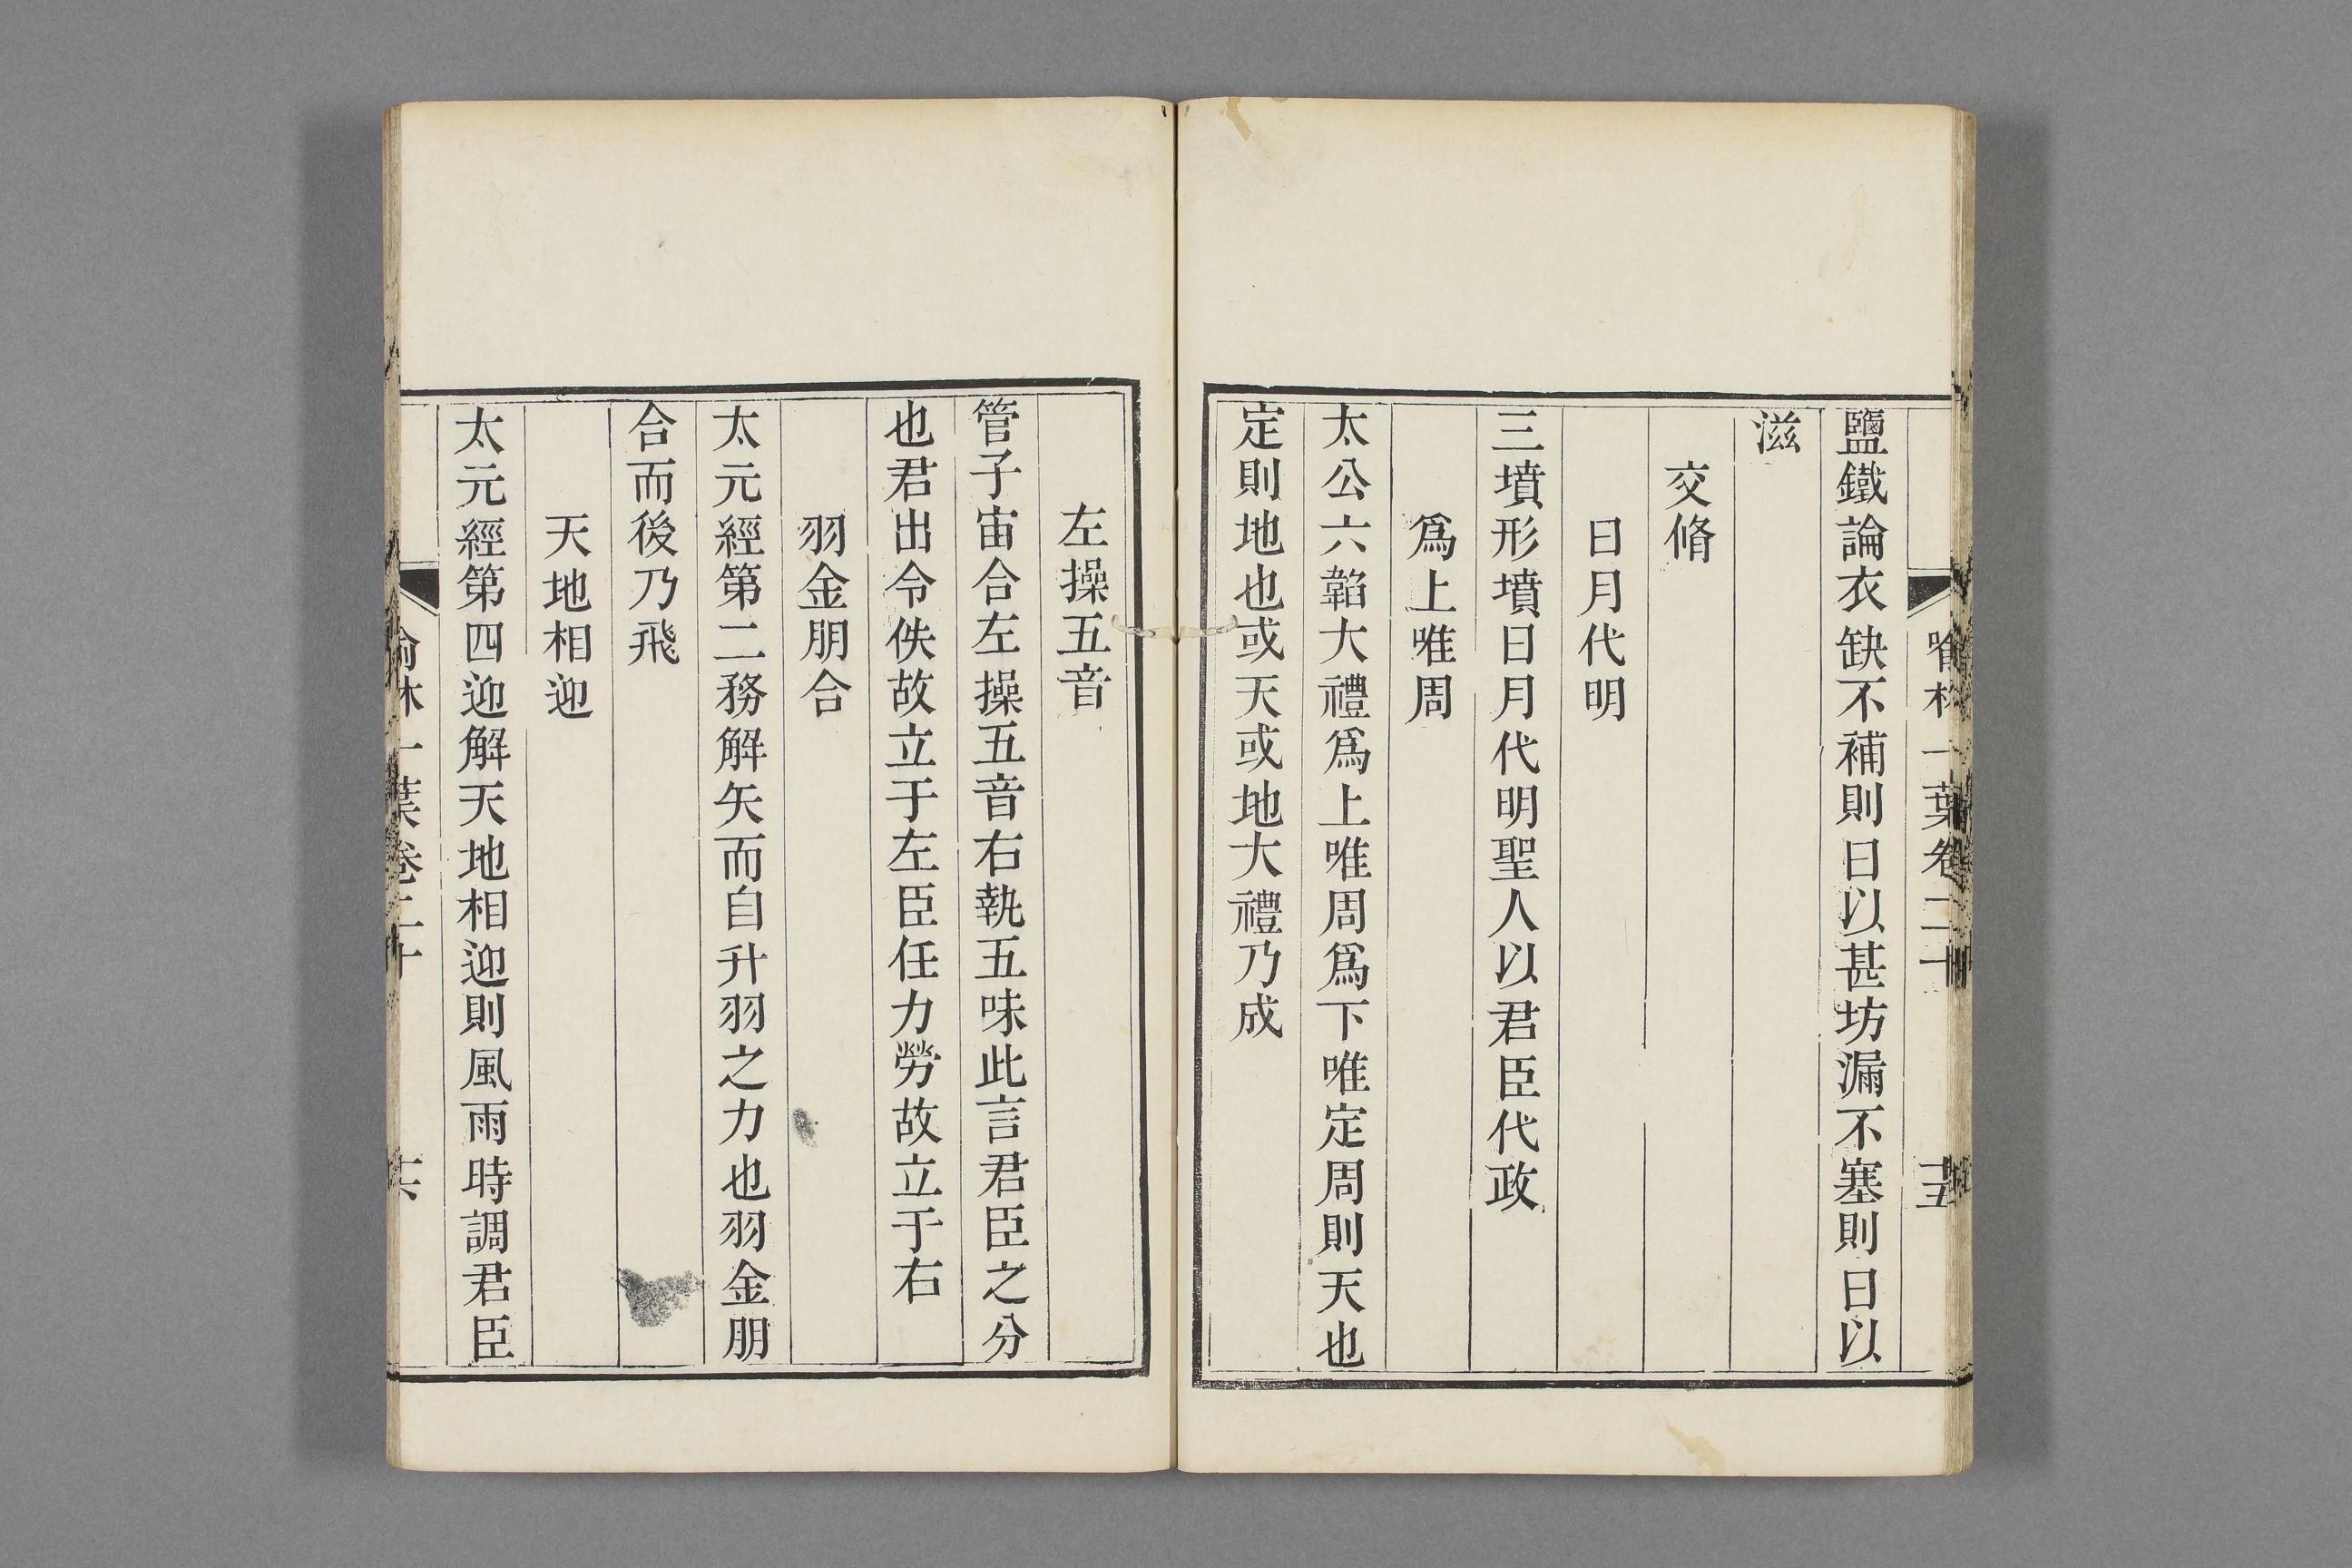 鹽鐵論衣缺不補則日以甚坊漏不塞則日以
滋
交脩
日月代明
三墳形墳日月代明聖人以君臣代政
爲上唯周
太公六韜大禮爲上唯周爲下唯定周則天也
定則地也或天或地大禮乃成
左操五音
管子宙合左操五音右執五味此言君臣之分
也君出令佚故立于左臣任力勞故立于右
羽金朋合
太元經第二務解矢而自升羽之力也羽金朋
合而後乃飛
天地相迎
太元經第四迎解天地相迎則風雨時調君臣